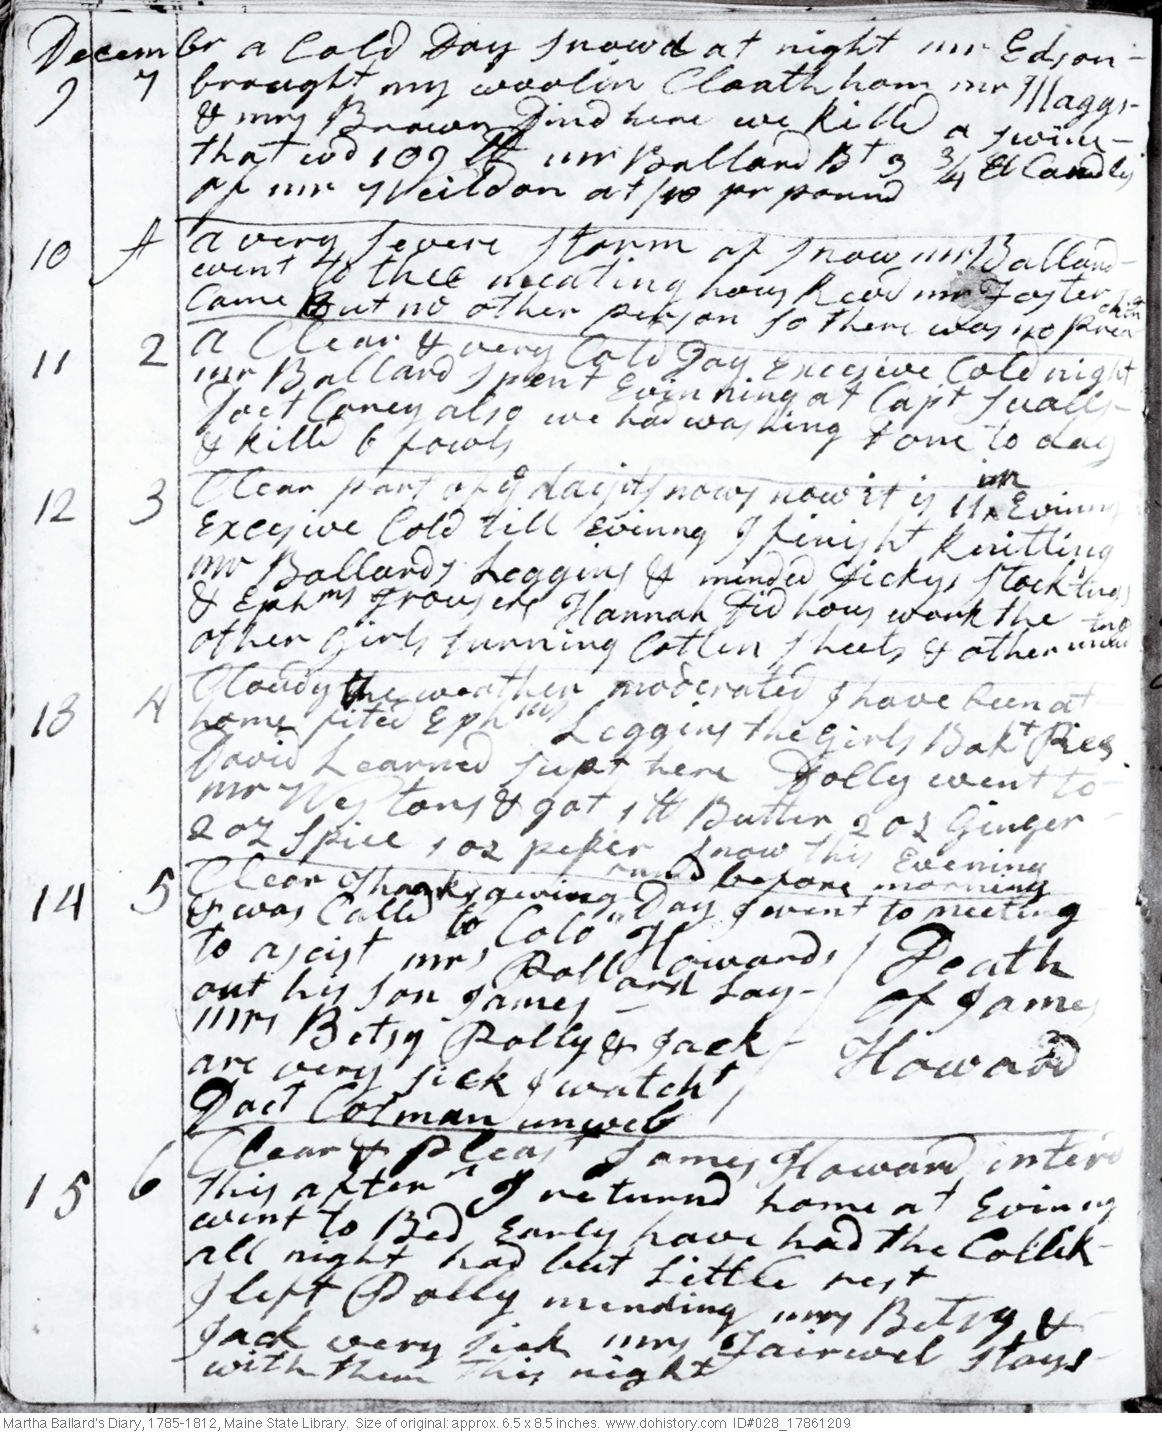 Decembr a Cold Day snowd at night mr Edson
9 7 brought my woolin Cloath hom mr Maggs
& mrs Brown Dind here we killd a swine
that wd 109 lb mr Ballard Bt 3 3/4 lb Candls
of mr Weildon at /10 pr pound
10 A a very severe storm of snow mr Ballard
went to thee meating hous Revd mr Foster
Came But no other person so there was no prea
ching
11 2 a Clear & very Cold Day Excesive Cold night
mr Ballard spent Evinning at Capt Sualls
Doct Coney also we had washing done to day
& killd 6 fowls
12 3 Clear part of ye day it snows now it is 11 in Evinng
Excesive Cold till Evinng I finisht knitting
mr Ballards Leggins & minded Jickys Stockings
& Ephms Trousers Hannah did hous work the two
other girls turning Cotten sheets & other
13 4 Cloudy the weather moderated I have been at
home fited Ephms Leggins the girls Bakt Pies
David Learned supt here Dolly went to
mr Westons & got 1 lb Butter 2 oz Ginger
2 oz Spice 1 oz peper snow this Evening
14 5 Clear Thanksgiving Day I went to meeting
& was Calld to Colo Howards before morning
to asist mrs Pollard Lay
out his son James
mrs Betsy Polly & Jack
are very sick I watcht
Doct Colman
Death
of James
Howard
15 6 Clear & Pleast James Howard interd
this aftern I returnd home at Evinng
went to Bed Early have had the Collik
all night had but Little rest
I left Polly mending mrs Betsy &
Jack very sick mrs Fairwel stays
with them this night
Martha Ballard's Diary, 1785-1812, Maine State Library. Size of original: approx. 6.5 x 8.5 inches. www.dohistory.com ID#028_17861209